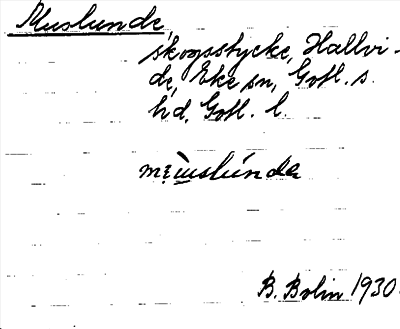 Muslunde,
skogsstycke, Hallvi-
de, Eke sn, Gotl. s.
hd. Gotl. l.
B. Bolin 1930.